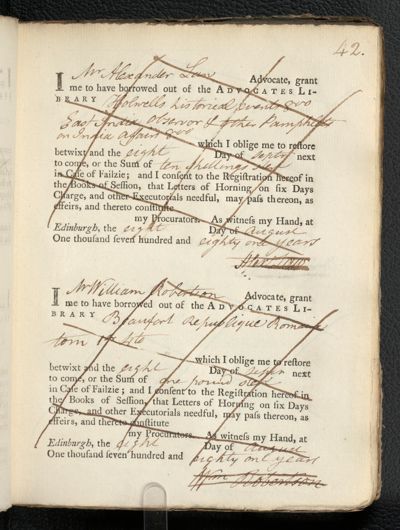 42.
I Mr Alexander Law Advocate, grant
me to have borrowed out of the ADVOCATES LI-
BRARY Holwells historical events 8vo
East India observor & other Pamphlets
on India affairs 8vo
which I oblige me to restore
betwixt and the eight Day of Septr next
to come, or the Sum of ten shillings sterl
in Case of Failzie; and I consent to the Registration hereof in
the Books of Session, that Letters of Horning on six Days
Charge, and other Executorials needful, may pass thereon, as
effeirs, and thereto constitute
my Procurators. As witness my Hand, at
Edinburgh, the eight Day of August
One thousand seven hundred and eighty one years
Alexr Law
I Mr William Robertson Advocate, grant
me to have borrowed out of the ADVOCATES LI-
BRARY Beaufort Republique Romaine
tom 4to
which I oblige me to restore
betwixt and the eight Day of Septr next
to come, or the Sum of one pound sterl
in Case of Failzie; and I consent to the Registration hereof in
the Books of Session, that Letters of Horning on six Days
Charge, and other Executorials needful, may pass thereon, as
effeirs, and thereto constitute
my Procurators. As witness my Hand, at
Edinburgh, the eight Day of August
One thousand seven hundred and eighty one years
Wm Robertson